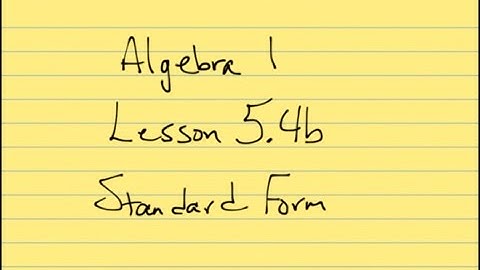 Algebra 1
Lesson 5.4b
Standard Form